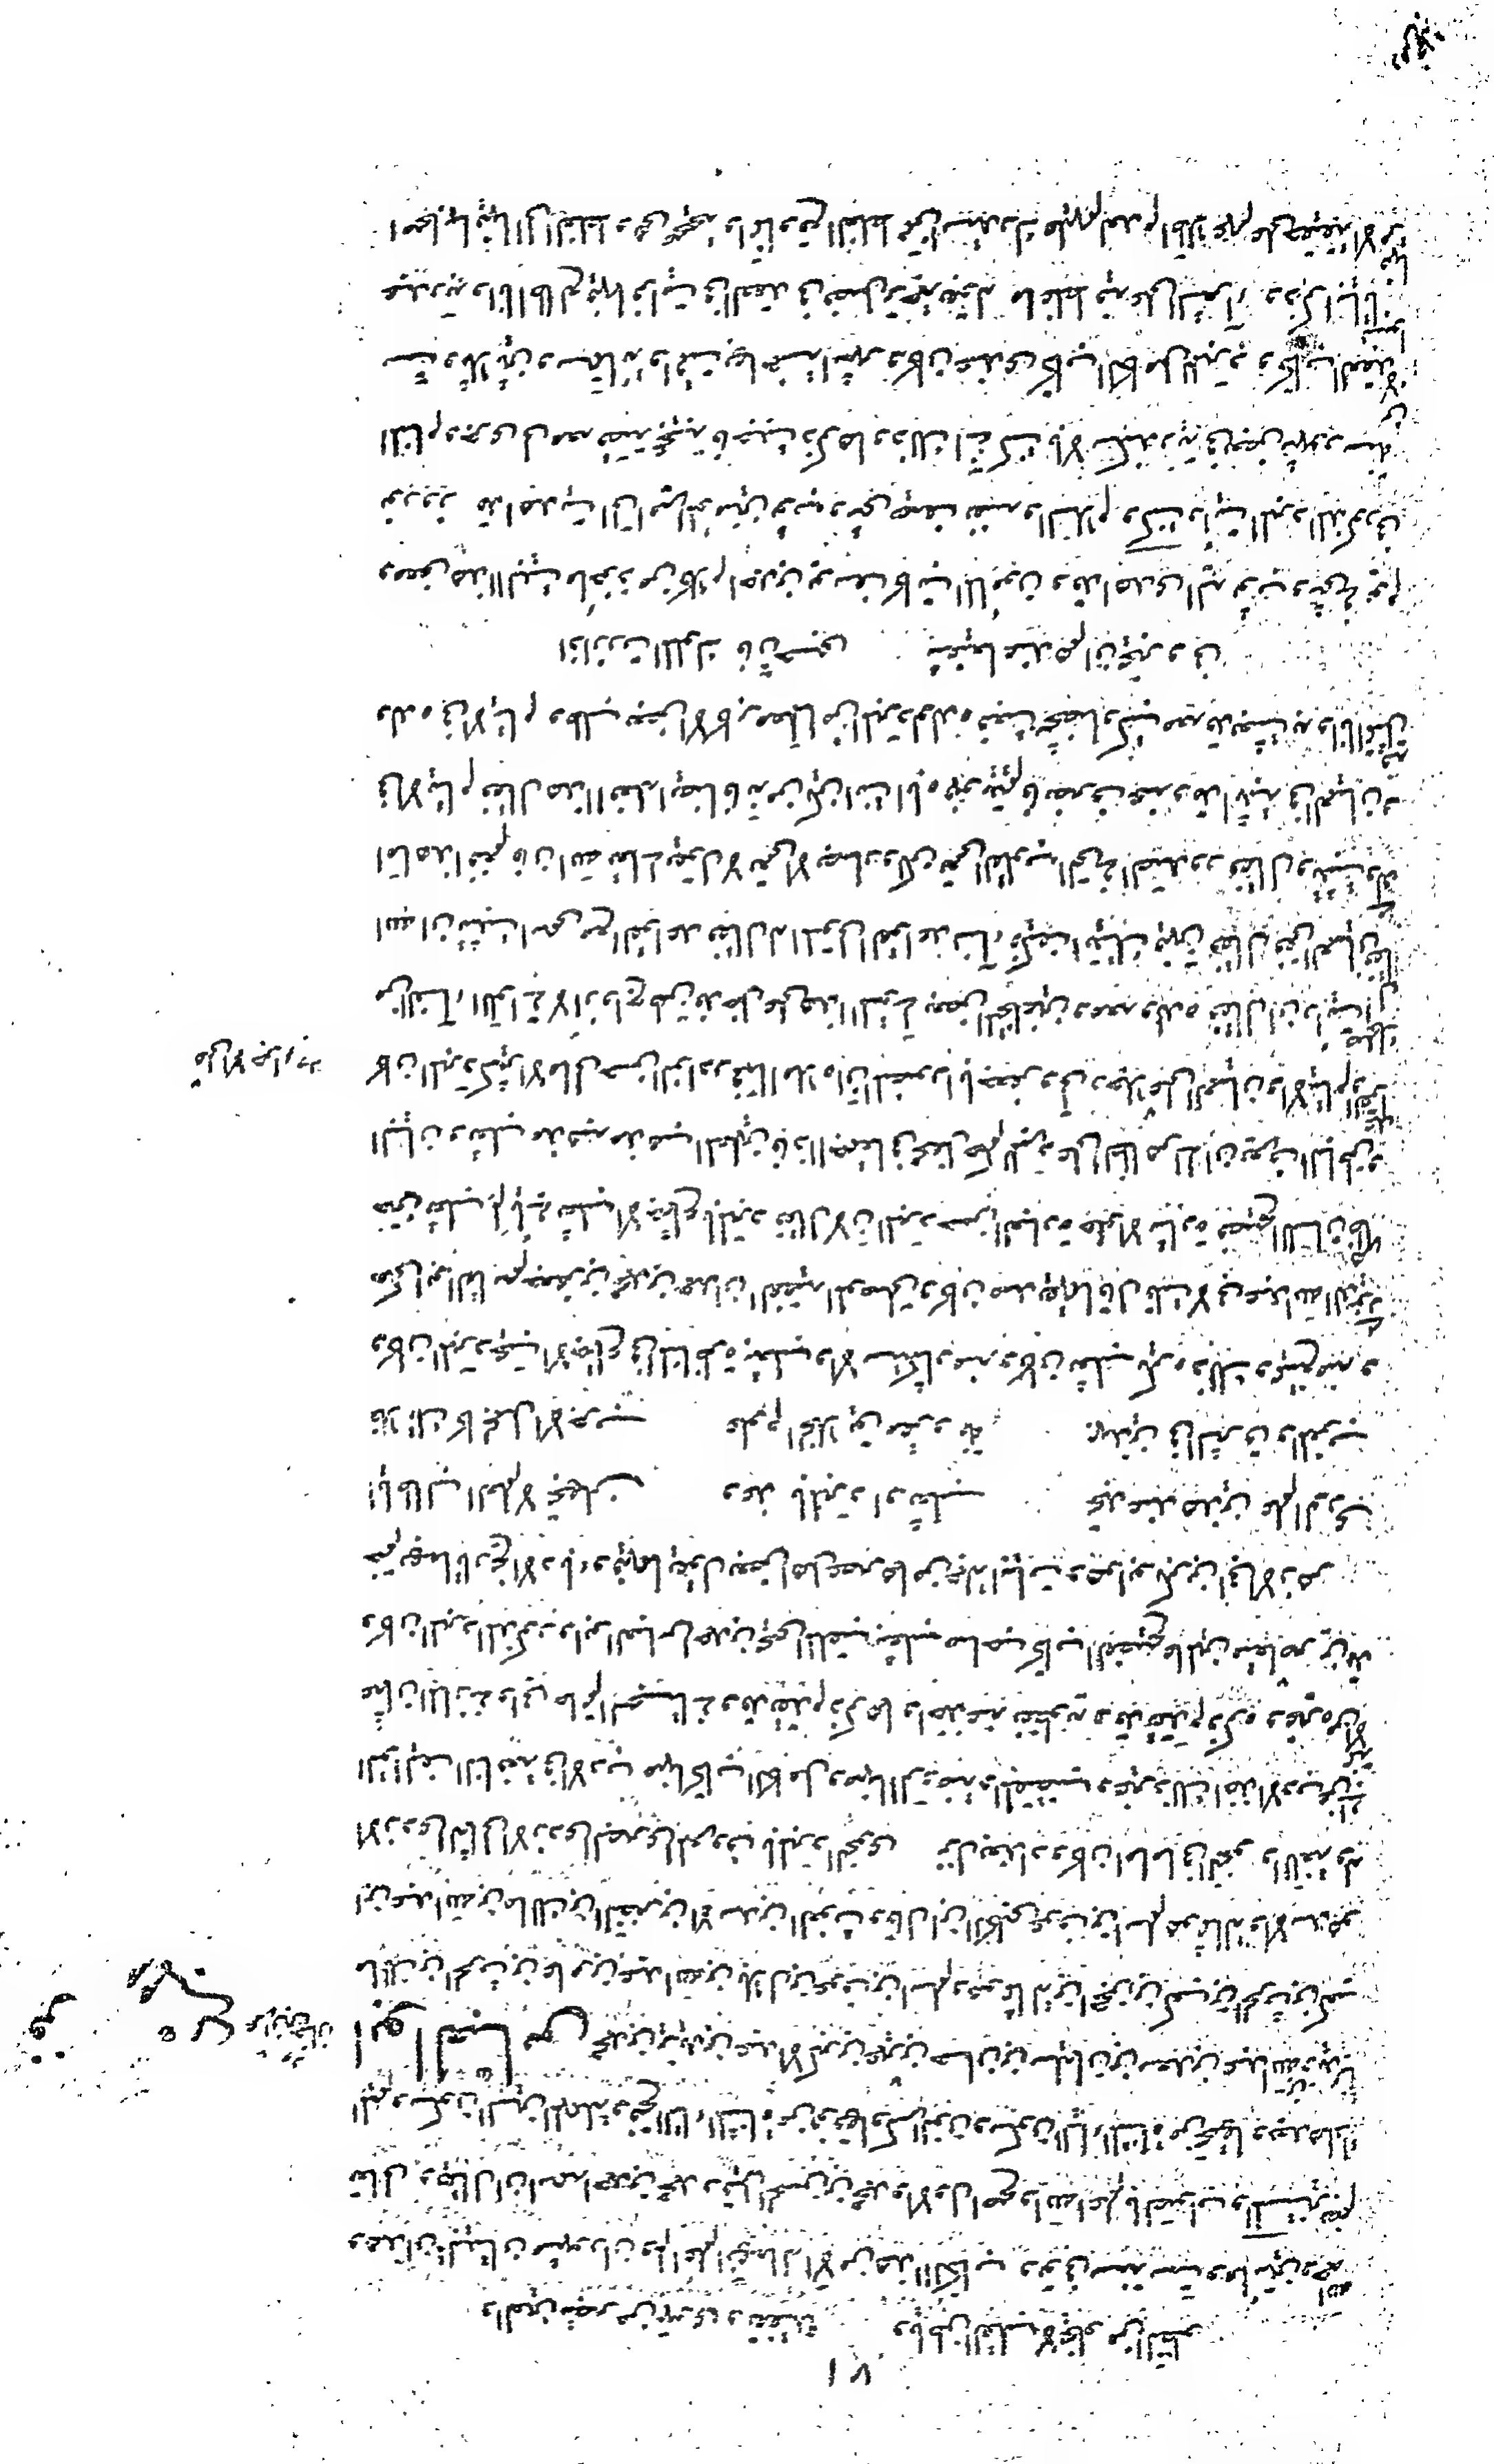 ١٧
والعين تبصر من تهوى وتفقده وناظر القلب لا يخلو من النظر
وهذان البيتان مشهوران من هذا الكتاب وتوفي سنة ست
تعالى وقيل ان اسمه احمد بن محمد وقيل الحسين بن محمد والاول اصح والله اعلم بالصواب
وسكون السين المهملة وفتح التاء المثناة من فوقها وكسر النون وسكون الياء المثناة من تحتها وبعدها
ابو العباس محمد بن يزيد بن عبد الاكبر بن عمير بن حسان بن سليمان بن سعد بن عبد الله بن زيد بن
مالك بن الحارث بن عامر بن عبد الله بن بلال بن عوف بن اسلم وهو ثمالة بن احجن بن كعب بن الحارث بن كعب
ابن عبد الله بن مالك بن النضر بن الاسد بن الغوث وقال ابن الكلبي عوف بن اسلم هو ثمالة والاسد هو
الازد الثمالي الازدي البصري المعروف بالمبرد النحوي نزل بغداد وكان اماما في النحو واللغة وله
التواليف النافعة في الادب منها كتاب الكامل ومنها الروضة والمقتضب وغير ذلك اخذ الادب عن ابي
عثمان المازني وابي حاتم السجستاني وقد تقدم ذكرهما واخذ عنه نفطويه وقد تقدم ذكره وغيره من الائمة
وكان المبرد المذكور وابو العباس احمد بن يحيى الملقب بثعلب صاحب كتاب الفصيح عالمين متعاصرين قد
ختم بهما تاريخ الادباء وفيهما يقول بعض اهل عصرهما من جملة ابيات وهو ابو بكر بن ابي الازهر
ايا طالب العلم لا تجهلن وعذ بالمبرد او ثعلب تجد عند هذين علم الورى
فلا تك كالجمل الاجرب علوم الخلائق مقرونة بهذين في الشرق والمغرب
وكان المبرد يحب الاجتماع في المناظرة بثعلب والاستكثار منه وكان ثعلب يكره ذلك ويمتنع منه و
حكى ابو القاسم جعفر بن محمد بن حمدان الفقيه الموصلي وكان صديقهما قال قلت لابي عبد الله الدينوري
ختن ثعلب لم يأبى ثعلب الاجتماع بالمبرد فقال لان المبرد حسن العبارة حلو الاشارة فصيح اللسان ظاهر
البيان وثعلب مذهبه مذهب المعلمين فاذا اجتمعا في محفل حكم للمبرد على الظاهر الى ان يعرف الباطن و
كان المبرد كثير الامالي حسن النوادر فمما املاه ان المنصور ابا جعفر ولى رجلا على العميان والايتام والقواعد
من النساء اللواتي لا ازواج لهن فدخل على هذا المتولي بعض المتخلفين ومعه ولده فقال ان رايت اصلحك
الله ان تثبت اسمي مع القواعد فقال له المتولي القواعد نساء فكيف اثبتك فيهن فقال ففي العميان فقال
اما هذا فنعم فان الله تعالى يقول لا تعمى الابصار ولكن تعمى القلوب التي في الصدور فقال وتثبت ولدي
في الايتام فقال هذا افعله ايضا فانه من تكن انت اباه فهو يتيم فانصرف عنه وقد اثبته في العميان و
ولده في الايتام وطلب بعض الاكابر معلما من المبرد لولده فبعث شخصا وكتب معه قد بعثت به وانا اتمثل
اذا زرت الملوك فان حسبي شفيعا عندهم ان يخبروني
ومعنى هذا البيت ماخوذ من كلام احمد بن يوسف كاتب المأمون وقد اهدى اليه ثوب وشي في يوم
نوروز قد اهديت الى امير المؤمنين ثوب وشي يصف نفسه والسلام وكنت رايت المبرد المذكور في
المنام وجرى لي معه قصة عجيبة فاحببت ذكرها وذلك انني كنت بالاسكندرية في بعض شهور سنة
ست وثلاثين وستمائة واقمت بها خمسة اشهر وكان عندي كتاب الكامل للمبرد وكتاب العقد لابن
عبد ربه وانا اطالع فيهما فرايت في العقد في فصل ترجمه بقوله ما غلط فيه على الشعراء وذكر ابياتا نسبوا
اصحابها فيها الى الغلط وهي صحيحة وانما وقع الغلط ممن استدرك عليهم لعدم اطلاعهم على حقيقة الامر فيها